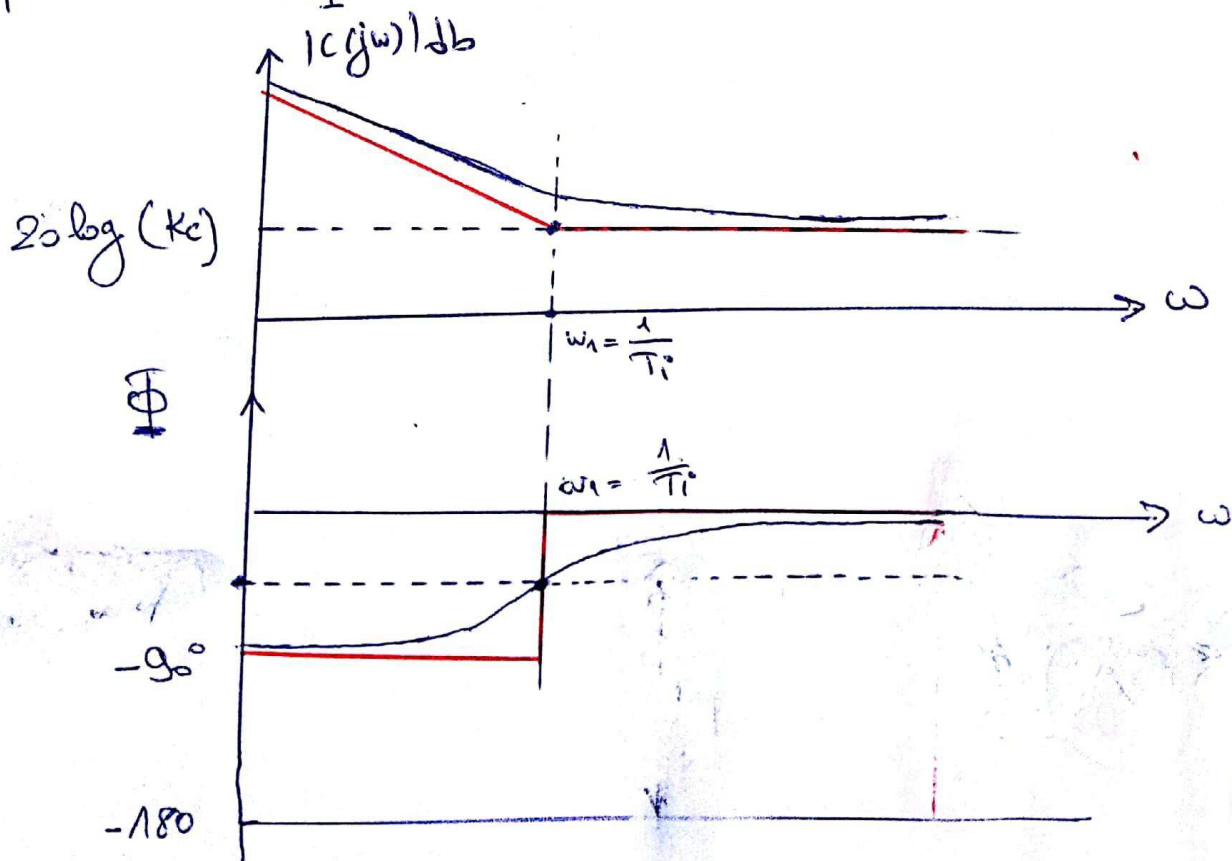 |C(jω)|db
20 log (Kc)
ω
ω1 = 1/Ti
Φ
ω1 = 1/Ti
ω
-90°
-180